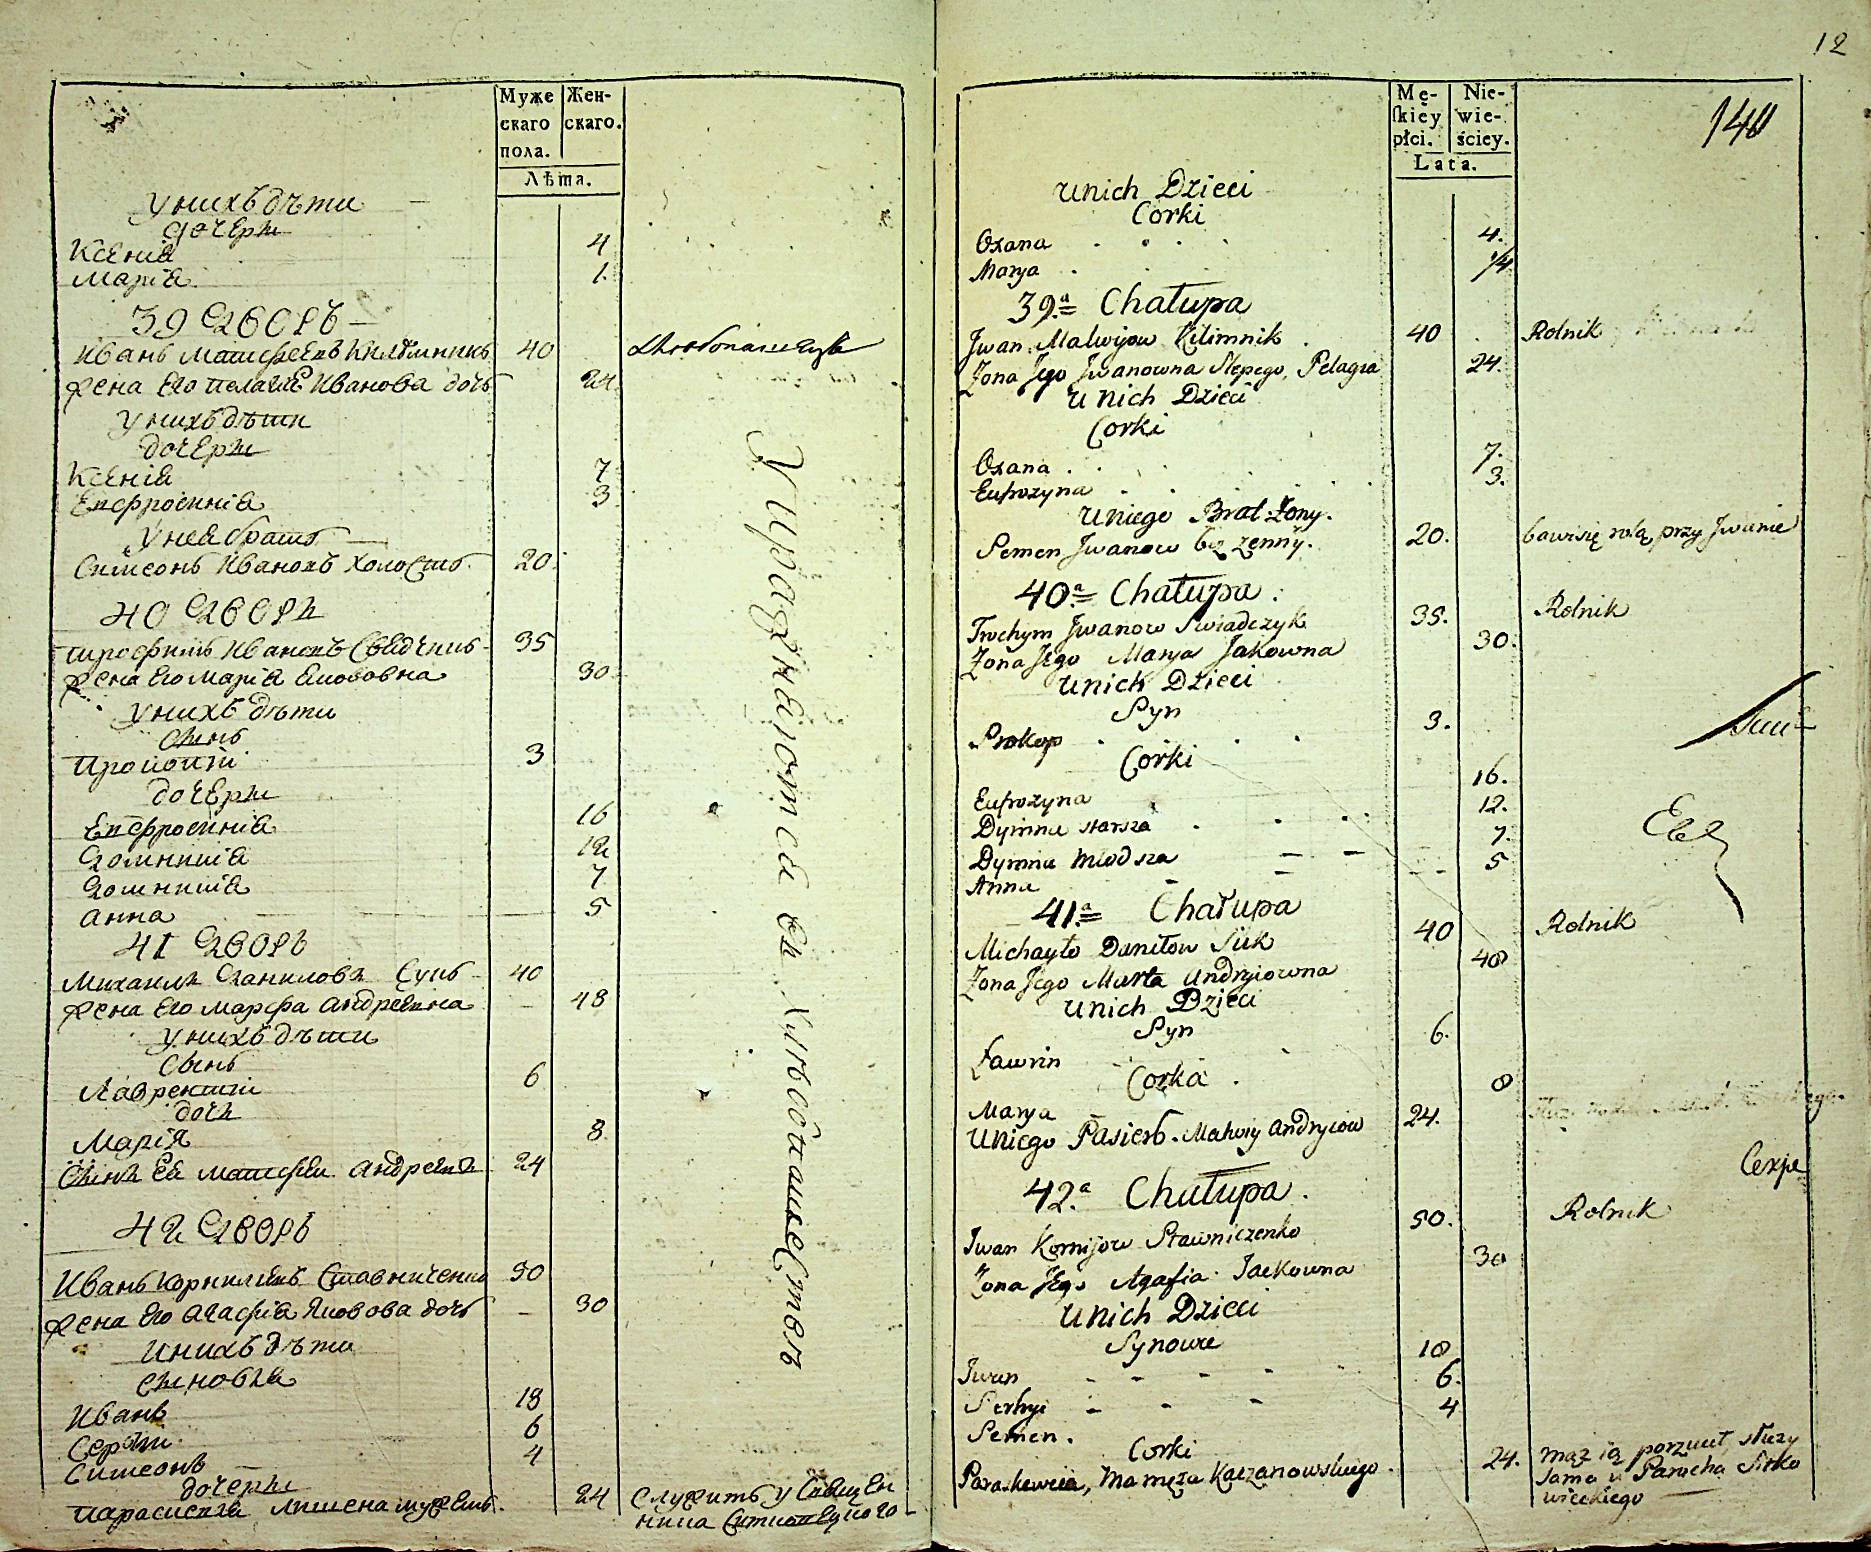 Муже
скаго
пола.
Жен-
скаго.
Лѣта.
У нихъ дѣти
дочери
Ксенія 4
Марія 1
39 Дворъ
Иванъ Матфеевъ Килимникъ 40
Жена Его Пелагия Иванова дочь 24
У нихъ дѣти
дочери
Ксенія 7
Евфросинія 3
У нея братъ
Симеонъ Ивановъ холостъ 20
40 Дворъ
Трофимъ Ивановъ 35
Жена Его Марія Якововна 30
У нихъ дѣти
Сынъ
Прокопій 3
дочери
Евфросинія 16
Домникія 12
Домникія 7
Анна 5
41 Дворъ
Михаилъ Даниловъ Сукъ 40
Жена Его Марфа Андреевна 48
У нихъ дѣти
Сынъ
Лаврентій 6
дочь
Марія 8
Сынъ Ея Матфей Андреевъ 24
42 Дворъ
Иванъ Корниліевъ Ставниченко 50
Жена Его Агафія Яковова дочь 30
У нихъ дѣти
сыновья
Иванъ 18
Сергій 6
Симеонъ 4
дочери
Параскевія 24 служитъ у Священ
ника
Упражняются въ хлѣбопашествѣ
12
140
Mę-
skiey
płci.
Nie-
wie-
ściey.
Lata.
U nich Dzieci
Corki
Oxana 4.
Marya 1/4
39.a Chałupa
Jwan Matwijow Kilimnik 40 Rolnik
Zona Jego Jwanowna Slepego, Pelagia 24.
U nich Dzieci
Corki
Oxana 7.
Eufrozyna 3.
U niego Brat Zony.
Semen Jwanow bezzenny. 20. bawi się rolą przy Jwanie
40.a Chałupa.
Trochym Jwanow Swiadczyk 35. Rolnik
Zona Jego Marya Jakowna 30.
U nich Dzieci
Syn
Prokop 3.
Corki
Eufrozyna 16.
Dymna starsza 12.
Dymna młodsza 7.
Anna 5
41.a Chałupa
Michayło Daniłow Suk 40 Rolnik
Zona Jego Marta Andryiowna 48
U nich Dzieci
Syn
Ławrin 6.
Corka
Marya 8
U niego Pasierb. Matwiy Andryiow 24.
42.a Chałupa.
Iwan Kornijow Stawniczenko 50. Rolnik
Zona Jego Agafia Jackowna 30
U nich Dzieci
Synowie
Iwan 18
Serhyi 6.
Semen. 4
Corki
Paraskewia, Ma męża Kaczanowskiego 24. mąż ią porzucił, służy
sama u Parocha Sitko
wieckiego